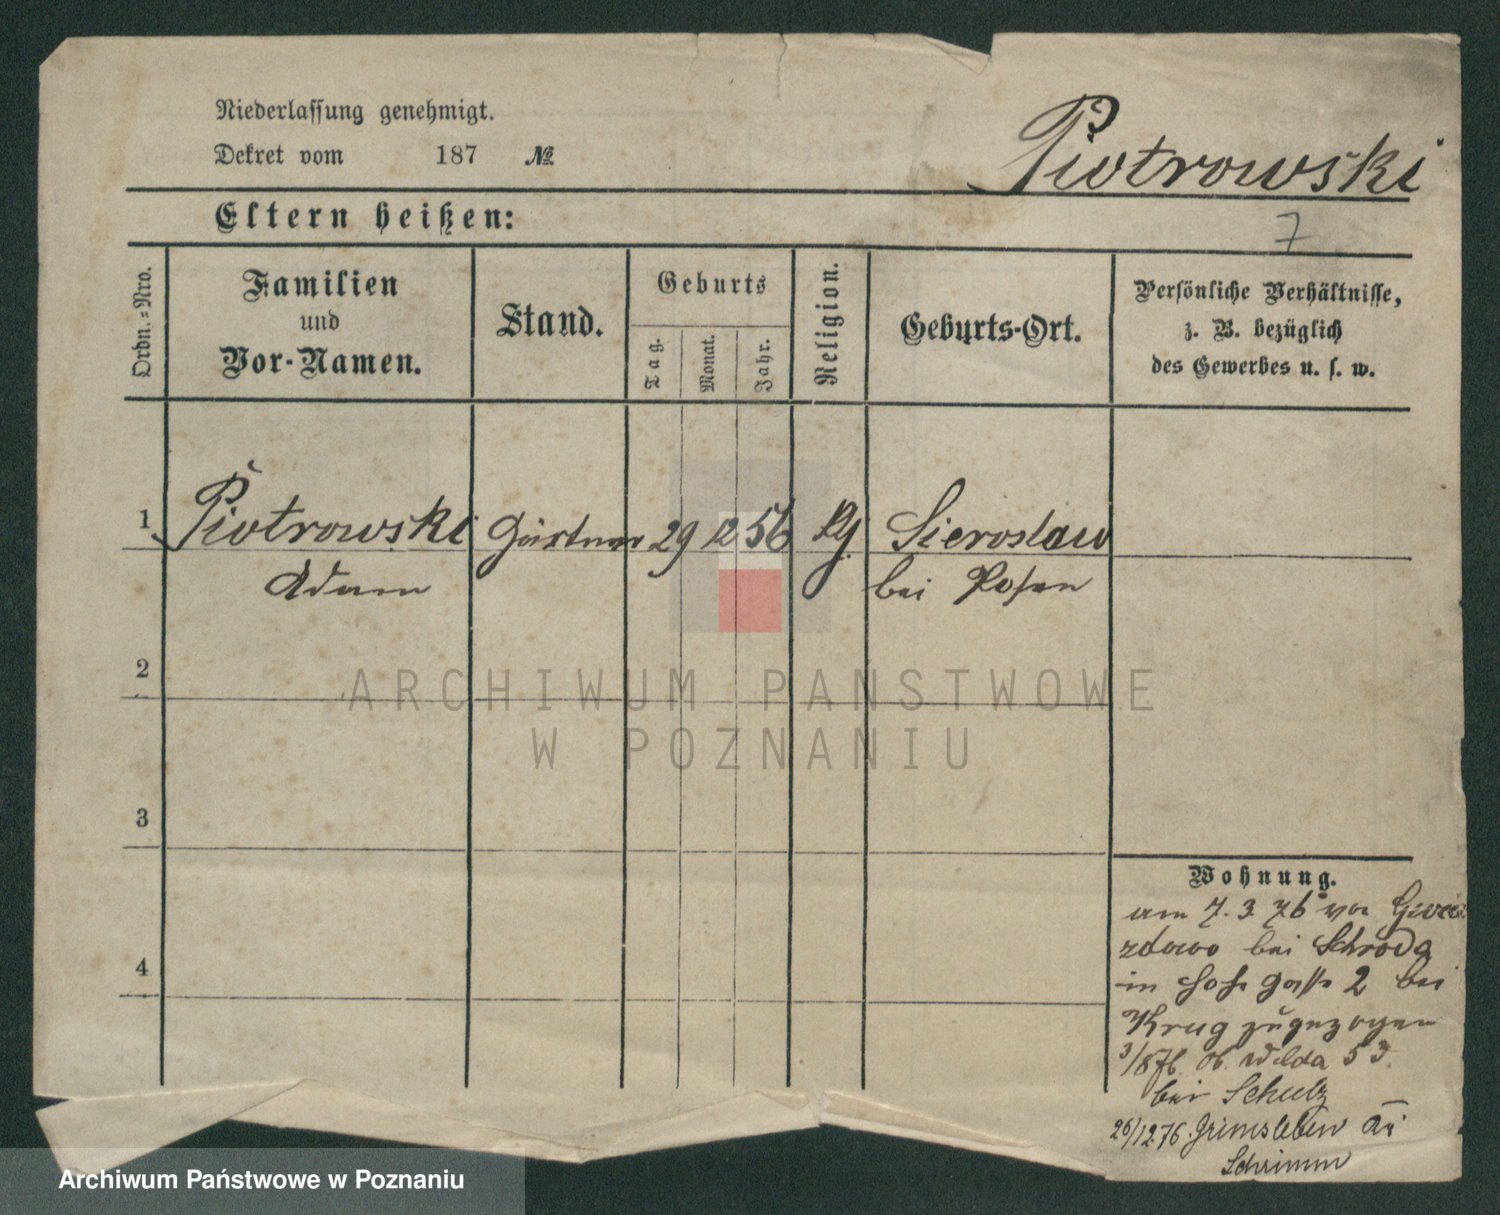 Niederlassung genehmigt.
Dekret vom 187 №
Piotrowski
Eltern heißen:
7
Ordn.-Nro.
Familien
und
Vor-Namen.
Stand.
Geburts
Tag.
Monat.
Jahr.
Religion.
Geburts-Ort.
Persönliche Verhältnisse,
z. B. bezüglich
des Gewerbes u. s. w.
1 Piotrowski Gärtner 29 12 56 Sierosław
Adam bei Posen
2
ARCHIWUM PAŃSTWOWE
W POZNANIU
3
Wohnung.
am 7. 3. 76 von
zdowo bei Schroda
4
in Hohe Gasse 2 bei
Krug zugezogen
3/876. ob. Wilda 53.
bei Schulz
26/1276. Grimsleben
Schrimm
Archiwum Państwowe w Poznaniu